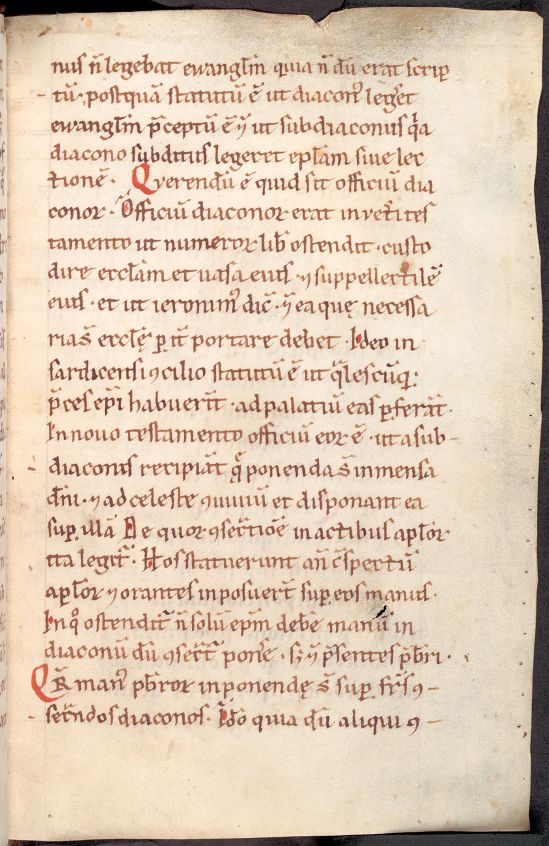 nus n̄ legebat ewangl̄m quia n̄ dū erat scrip
tū · postquā statutū ē ut diacon᷒ leg̃et
ewangl̄m p̄ceptū ē ⁊ ut subdiaconus q̄a
diacono subditus legeret ep̄lam siue lec
tionē · Querendū ē quid sit officiū dia
conor · Officiū diaconor erat in uet̃i tes
tamento ut numeror lib̃ ostendit · custo
dire eccl̄am et uasa eius · ⁊ suppellectilē
eius · et ut ieronim᷒ dic̄ · ⁊ ea que necessa
ria s̄ eccl̄ę p it̃ portare debet · Ideo in
sardicensi ꝯcilio statutū ē ut q̄lescūq;
p̄ces ep̄i habuer̄t · ad palatiū eas pferāt ·
In nouo testamento officiū eor ē · ut a sub-
diaconis recipiāt q̄ ponenda s̄ in mensa
dn̄i · ⁊ ad celeste ꝯuiuiū et disponant ea
sup illā De quor ꝯsecr̄tiōe in actibus apl̄or
ita legit̃ · Hos statuerunt an̄ c̄spectū
apl̄or ⁊ orantes inposuer̄t sup eos manus ·
In qͦ ostendit̃ n̄ solū ep̄m deb̄e manū in
diaconū dū ꝯsecr̄t pon̄e · s; ⁊ p̄sentes p̄bri ·
Q̄R man᷒ pb̄ror inponendę s̄ sup fr̄s ꝯ-
secr̄ndos diaconos · Ido quia dū aliqui ꝯ-